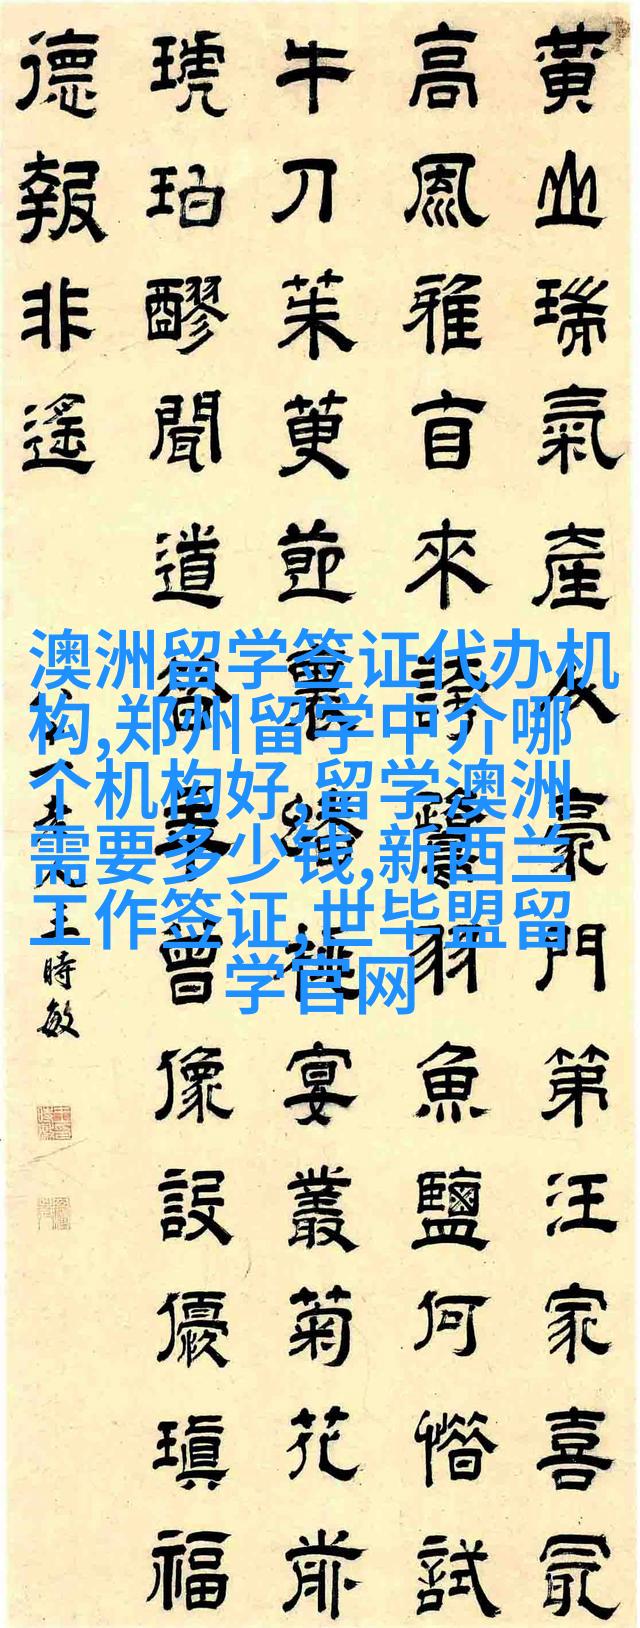 黃山瑞氣產人豪門第汪家喜冣
高風雅盲來詩護羽魚鹽何惜試
牛刀茱萸節裏峰極宴叢菊花前
琥珀醪聞道曾孟曾像設優瑱福
德報非遙
王時敏
澳洲留学签证代办机
构,郑州留学中介哪
个机构好,留学澳洲
需要多少钱,新西兰
工作签证,世毕盟留
学官网